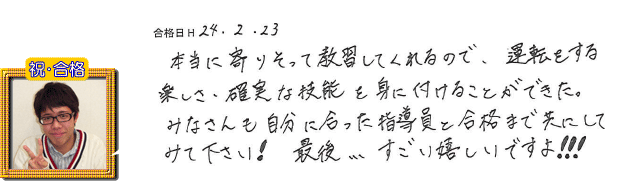 合格日 H 24.2.23
祝・合格
本当に寄りそって教習してくれるので、運転をする
楽しさ、確実な技能を身に付けることができた。
みなさんも自分に合った指導員と合格まで先にして
みて下さい! 最後... すごい嬉しいですよ!!!